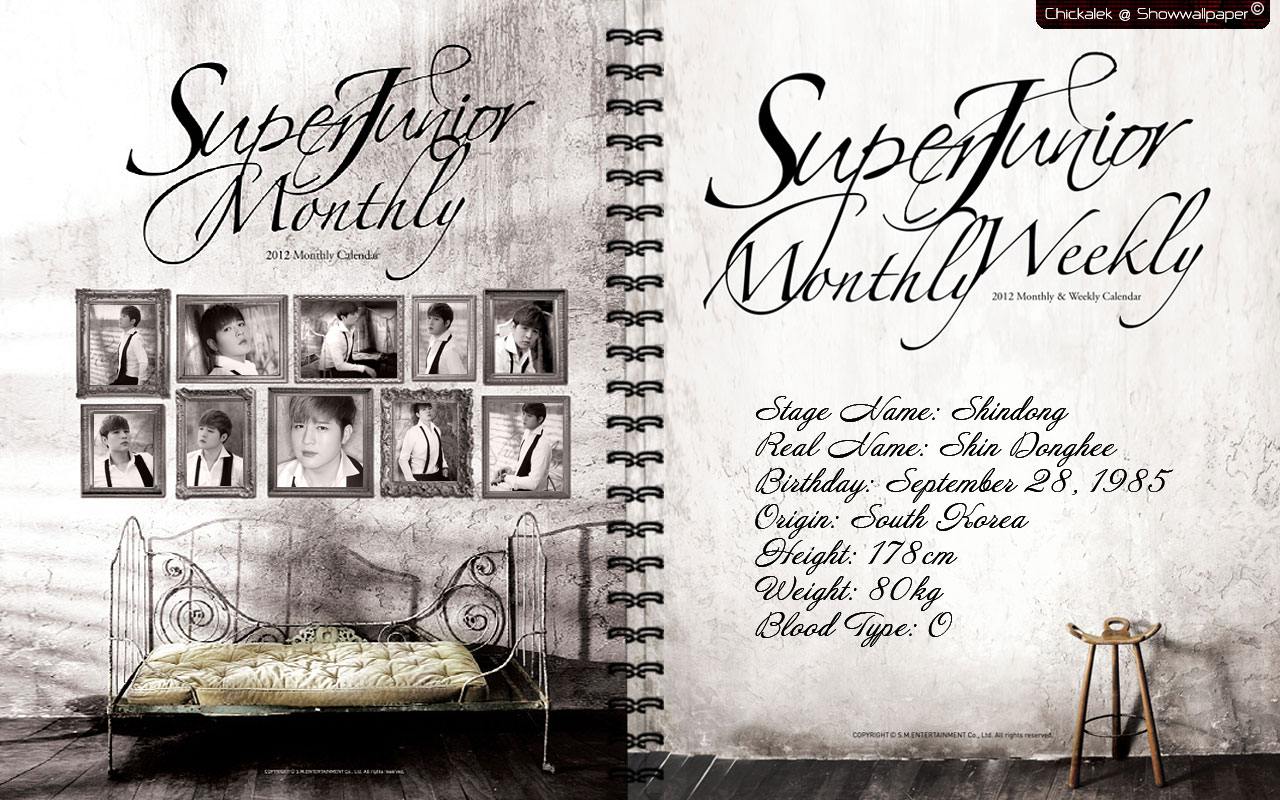 Chickalek @ Showwallpaper©
Super Junior
Monthly
2012 Monthly Calendar
COPYRIGHT © S.M.ENTERTAINMENT Co., Ltd. All rights reserved.
Super Junior
Monthly Weekly
2012 Monthly & Weekly Calendar
Stage Name: Shindong
Real Name: Shin Donghee
Birthday: September 28, 1985
Origin: South Korea
Height: 178cm
Weight: 80kg
Blood Type: O
COPYRIGHT © S.M.ENTERTAINMENT Co., Ltd. All rights reserved.